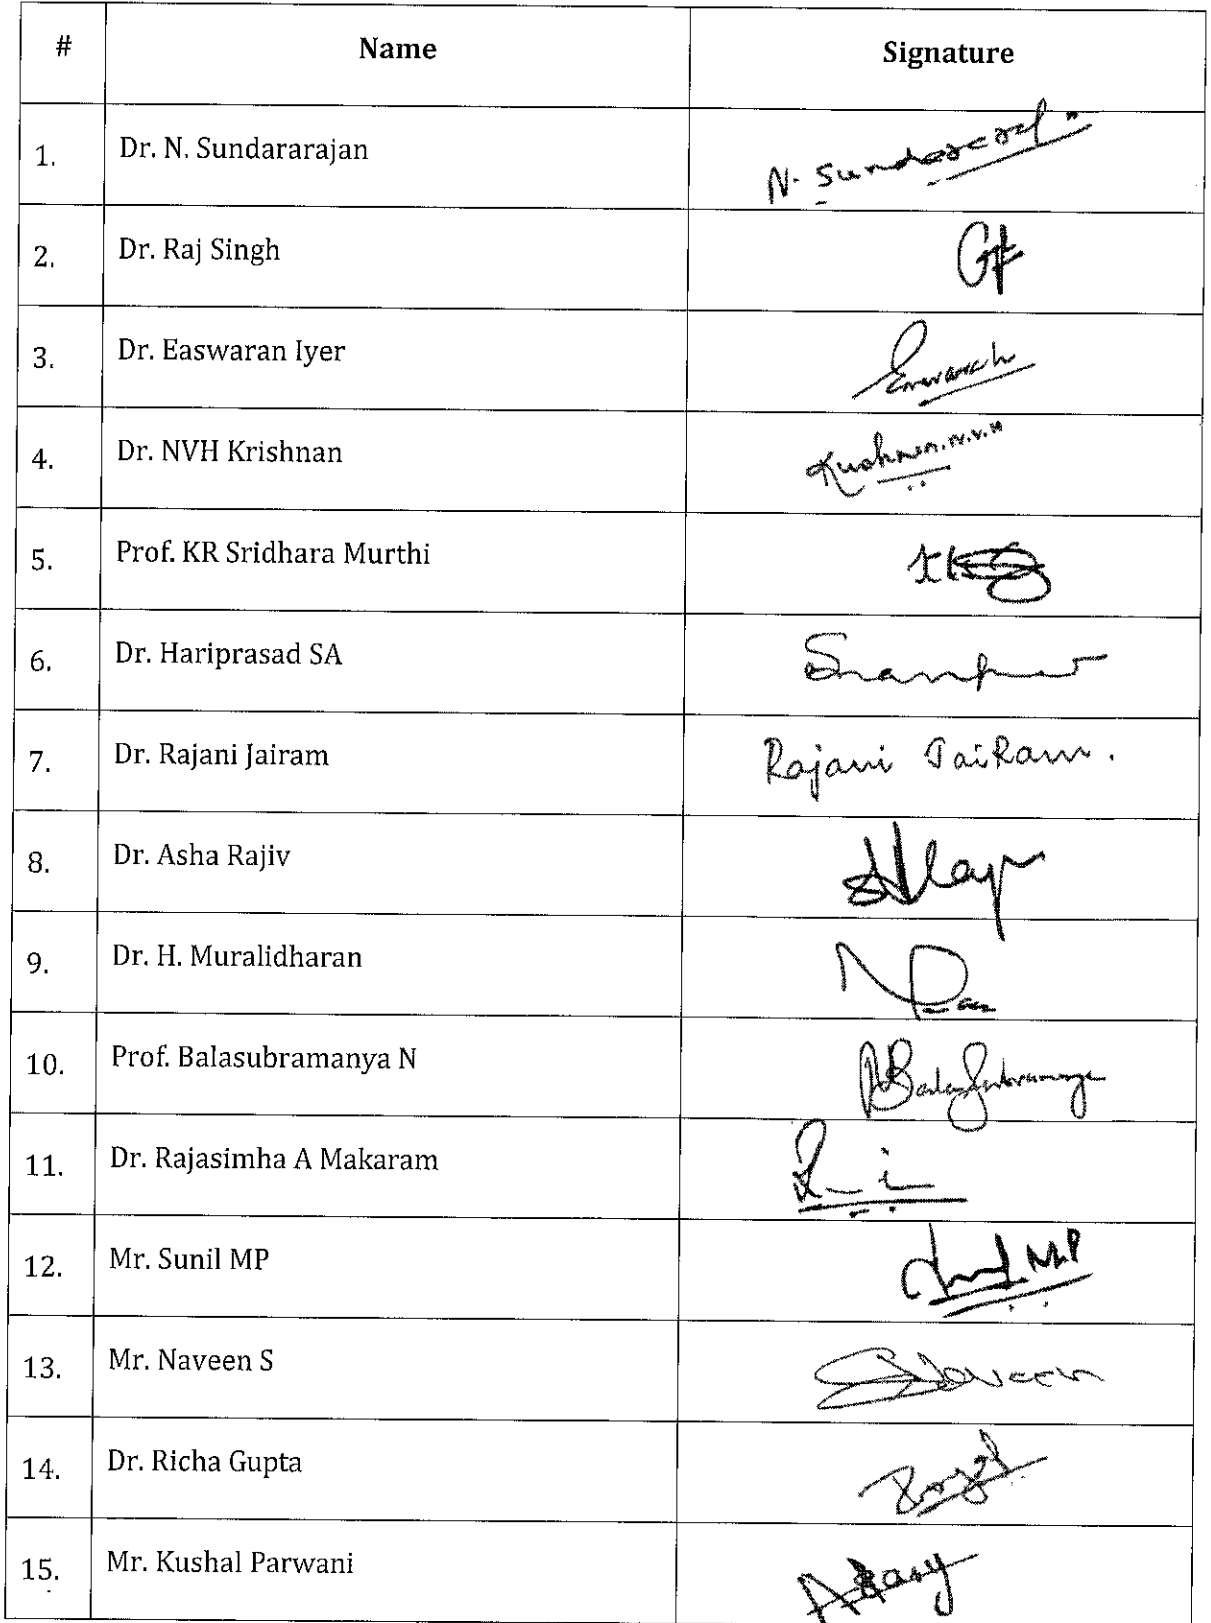 # Name Signature
1. Dr. N. Sundararajan N. Sundararaj
2. Dr. Raj Singh
3. Dr. Easwaran Iyer
4. Dr. NVH Krishnan Krishnan.N.V.H
5. Prof. KR Sridhara Murthi
6. Dr. Hariprasad SA
7. Dr. Rajani Jairam Rajani JaiRam.
8. Dr. Asha Rajiv
9. Dr. H. Muralidharan
10. Prof. Balasubramanya N Balasubramanya
11. Dr. Rajasimha A Makaram
12. Mr. Sunil MP MP
13. Mr. Naveen S Naveen
14. Dr. Richa Gupta
15. Mr. Kushal Parwani